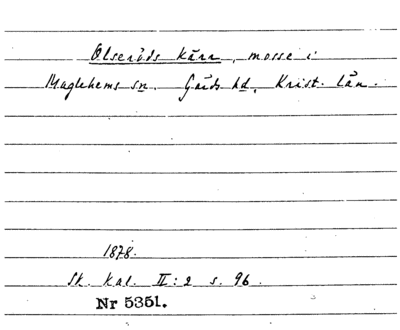 Olseröds Kärr, mosse i
Maglehems sn. Gärds hd, Krist. län.
1878.
Sk. Kal. II:2 s. 96.
Nr 5351.